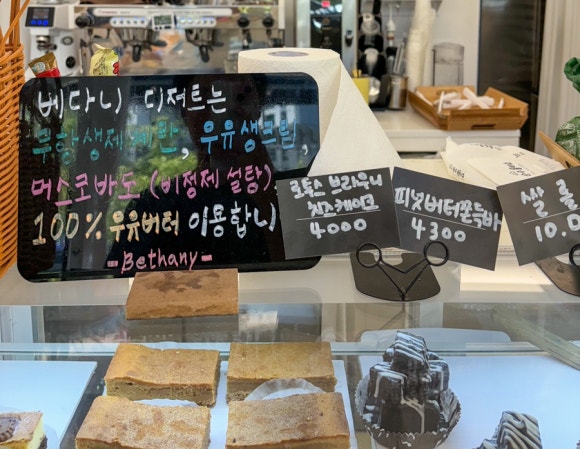 베다니 디저트는
무항생제계란, 우유생크림,
머스코바도 (비정제 설탕)
100% 우유버터 이용합니
- Bethany -
로투스 브라우니
치즈케이크
4.000
피넛버터쫀득바
4.300
쌀 롤
10.0